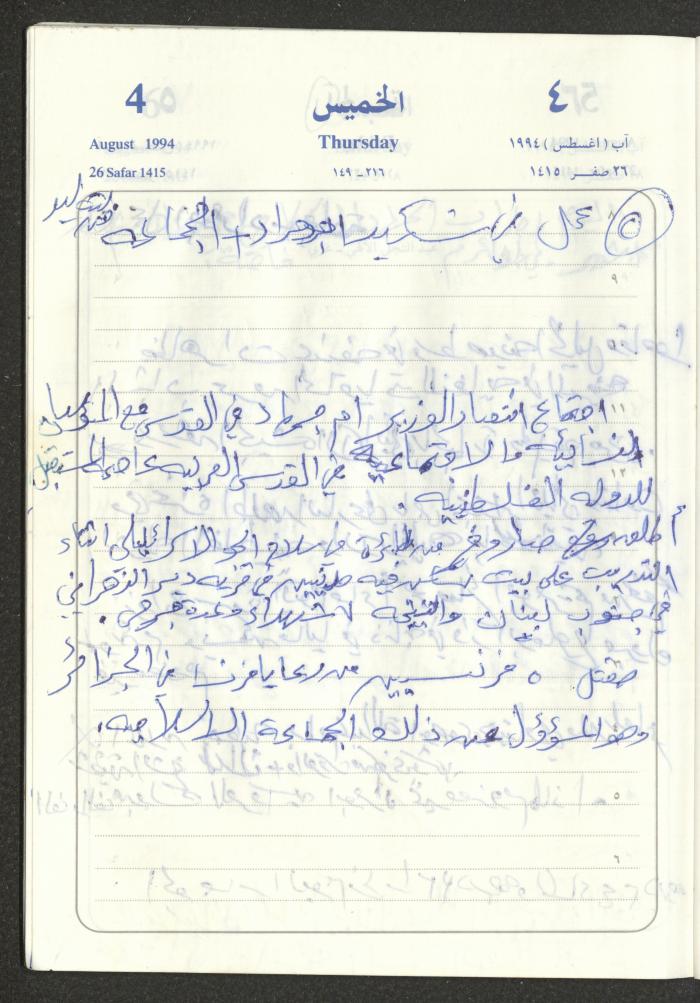 4 الخميس ٤
August 1994 Thursday آب (اغسطس) ١٩٩٤
26 Safar 1415 ٢١٦-١٤٩ ٢٦ صفر ١٤١٥
٥ عمل
اجتماع الوزير ام جهاد في القدس مع
النسائية والاجتماعية في القدس العربيه عاصمة المستقبل
للدوله الفلسطينيه.
أطلق صاروخ من طائرة من سلاح الجو الاسرائيلي اثناء
التدريب على بيت فيه في قريه دير الزهراني
في جنوب لبنان والنتيجه ٧ شهداء وعدة جرحى.
مقتل ٥ فرنسيين من رعايا فرنسا في الجزائر
وهو المسؤول عن ذلك الجماعة الاسلاميه.